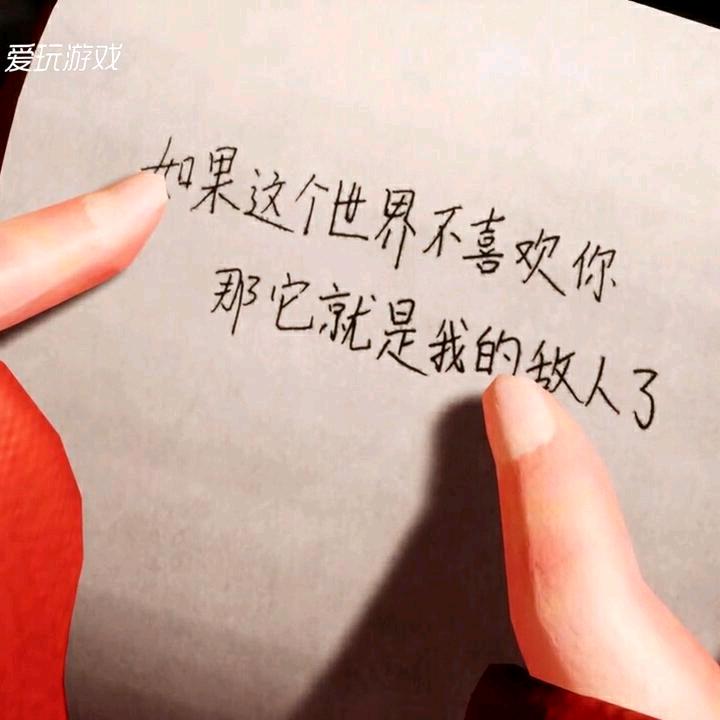 爱玩游戏
如果这个世界不喜欢你
那它就是我的敌人了